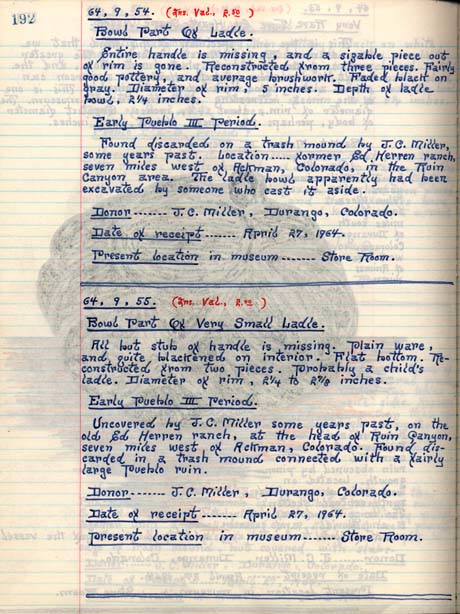 192
64, 9, 54. (Ins. Val., 2.50)
Bowl Part Of Ladle.
Entire handle is missing, and a sizable piece out
of rim is gone. Reconstructed from three pieces. Fairly
good pottery, and average brushwork. Faded black on
gray. Diameter of rim, 5 inches. Depth of ladle
bowl, 2¼ inches.
Early Pueblo III Period.
Found discarded on a trash mound by J.C. Miller,
some years past. Location ..... former Ed Herren ranch,
seven miles west of Ackman, Colorado, in the Ruin
Canyon area. The ladle bowl apparently had been
excavated by someone who cast it aside.
Donor ------- J.C. Miller, Durango, Colorado.
Date of receipt ------- April 27, 1964.
Present location in museum ------- Store Room.
64, 9, 55. (Ins. Val., 2.50)
Bowl Part Of Very Small Ladle.
All but stub of handle is missing. Plain ware,
and quite blackened on interior. Flat bottom. Re-
constructed from two pieces. Probably a child's
ladle. Diameter of rim, 2¼ to 2⅞ inches.
Early Pueblo III Period.
Uncovered by J.C. Miller some years past, on the
old Ed Herren ranch, at the head of Ruin Canyon,
seven miles west of Ackman, Colorado. Found dis-
carded in a trash mound connected with a fairly
large Pueblo ruin.
Donor ------- J.C. Miller, Durango, Colorado.
Date of receipt ------- April 27, 1964.
Present location in museum ------- Store Room.